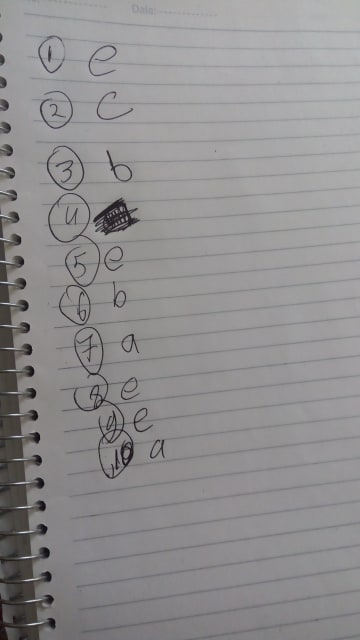 Data:
1 e
2 c
3 b
4
5 e
6 b
7 a
8 e
9 e
10 a